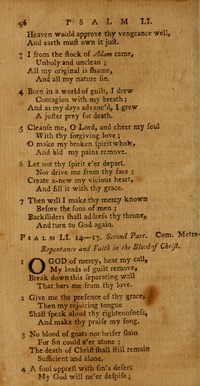 56 PSALM LI.
Heaven would approve thy vengeance well,
And earth must own it just.
3 I from the stock of Adam came,
Unholy and unclean;
All my original is shame,
And all my nature sin.
4 Born in a world of guilt, I drew
Contagion with my breath;
And as my days advanc'd, I grew
A juster prey for death.
5 Cleanse me, O Lord, and cheer my soul
With thy forgiving love;
O make my broken spirit whole,
And bid my pains remove.
6 Let not thy Spirit e'er depart.
Nor drive me from thy face;
Create a-new my vicious heart,
And fill it with thy grace.
7 Then will I make thy mercy known
Before the sons of men;
Backsliders shall address thy throne,
And turn to God again.
PSALM LI. 14—17. Second Part. Com. Metre
Repentance and Faith in the Blood of Christ.
1 O GOD of mercy, hear my call,
My loads of guilt remove,
Break down this separating wall
That bars me from thy love.
2 Give me the presence of thy grace,
Then my rejoicing tongue
Shall speak aloud thy righteousness,
And make thy praise my song.
3 No blood of goats nor heifer slain
For sin could e'er atone:
The death of Christ shall still remain
Sufficient and alone.
4 A soul opprest with sin's desert
My God will ne'er despise;